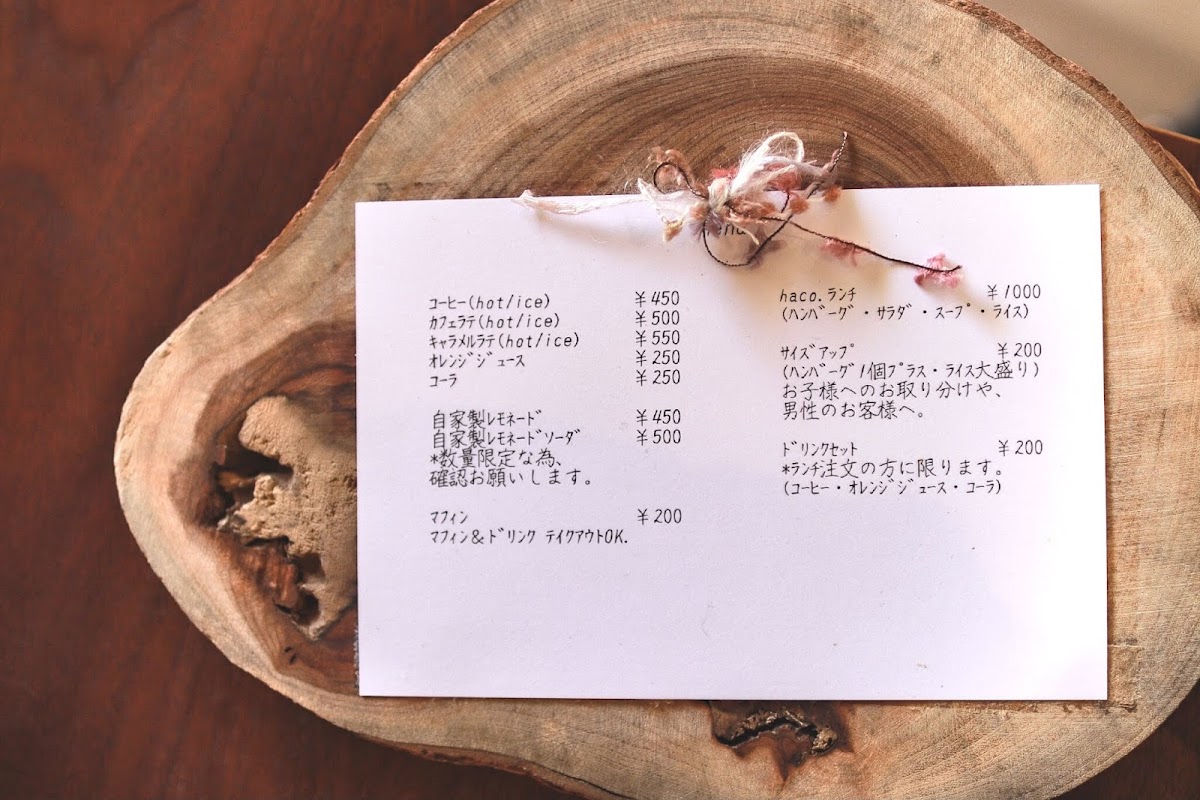 コーヒー(hot/ice) ¥450
カフェラテ(hot/ice) ¥500
キャラメルラテ(hot/ice) ¥550
オレンジジュース ¥250
コーラ ¥250
自家製レモネード ¥450
自家製レモネードソーダ ¥500
*数量限定な為、
確認お願いします。
マフィン ¥200
マフィン&ドリンク テイクアウトOK.
haco.ランチ ¥1000
(ハンバーグ・サラダ・スープ・ライス)
サイズアップ ¥200
(ハンバーグ1個プラス・ライス大盛り)
お子様へのお取り分けや、
男性のお客様へ。
ドリンクセット ¥200
*ランチ注文の方に限ります。
(コーヒー・オレンジジュース・コーラ)